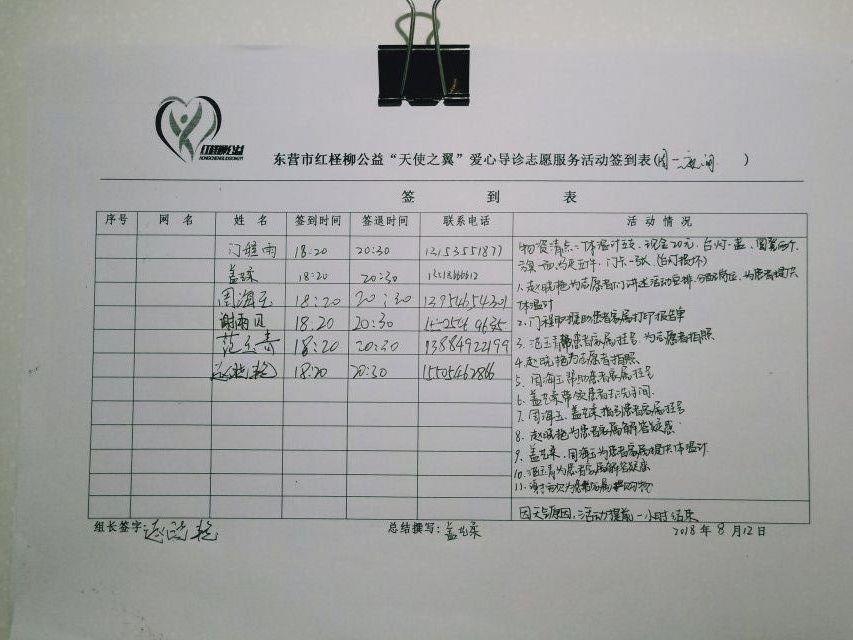 红柽柳公益
东营市红柽柳公益“天使之翼”爱心导诊志愿服务活动签到表(周一夜间)
签 到 表
序号 网 名 姓 名 签到时间 签退时间 联系电话 活 动 情 况
18:20 20:30 13153551877
盖艺柔 18:20 20:30
周海玉 18:20 20:30 13954654301
谢雨贝 18:20 20:30
范玉青 18:20 20:30 13884922199
赵晓艳 18:20 20:30 15505462866
物资清点:体温计五支,现金20元,台灯一盏,
1.赵晓艳为志愿者们讲述活动安排,分配岗位,为患者提供
体温计
2.门程雨帮助患者家属打印报告单
3.范玉青帮患者家属挂号,为志愿者拍照
4.赵晓艳为志愿者拍照
5.周海玉帮助患者家属挂号
6.盖艺柔带领患者去洗手间
7.周海玉、盖艺柔指引患者家属挂号
8.赵晓艳为患者家属解答疑惑
9.盖艺柔、周海玉为患者家属提供体温计
10.范玉青为患者家属解答疑惑
11.谢雨贝为患者家属
因天气原因,活动提前一小时结束
组长签字:赵晓艳 总结撰写:盖艺柔 2018年8月12日